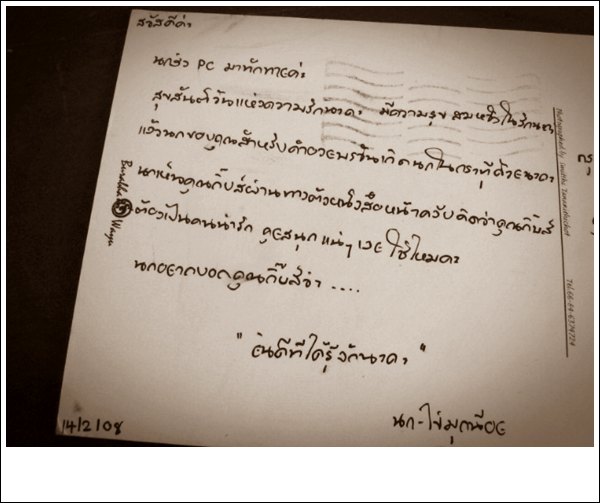 สวัสดีค่ะ
นกส่ง PC มาทักทายค่ะ
สุขสันต์วันแห่งความรักนะคะ มีความสุข สมหวังในรักนะคะ
แล้วนกขอบคุณสำหรับคำอวยพรวันเกิดนกในกระทู้ด้วยนะคะ
นกเห็นคุณกิ๊บส์ผ่านทางตัวหนังสือหน้าครับคิดว่าคุณกิ๊บส์
ต้องเป็นคนน่ารัก คุยสนุก แน่ๆ เลย ใช่ไหมคะ
นกอยากบอกคุณกิ๊บส์ว่า ....
" ยินดีที่ได้รู้จักนะคะ "
นก-ไข่มุกน้อย
14/2/08
Tel.66-84-6374724